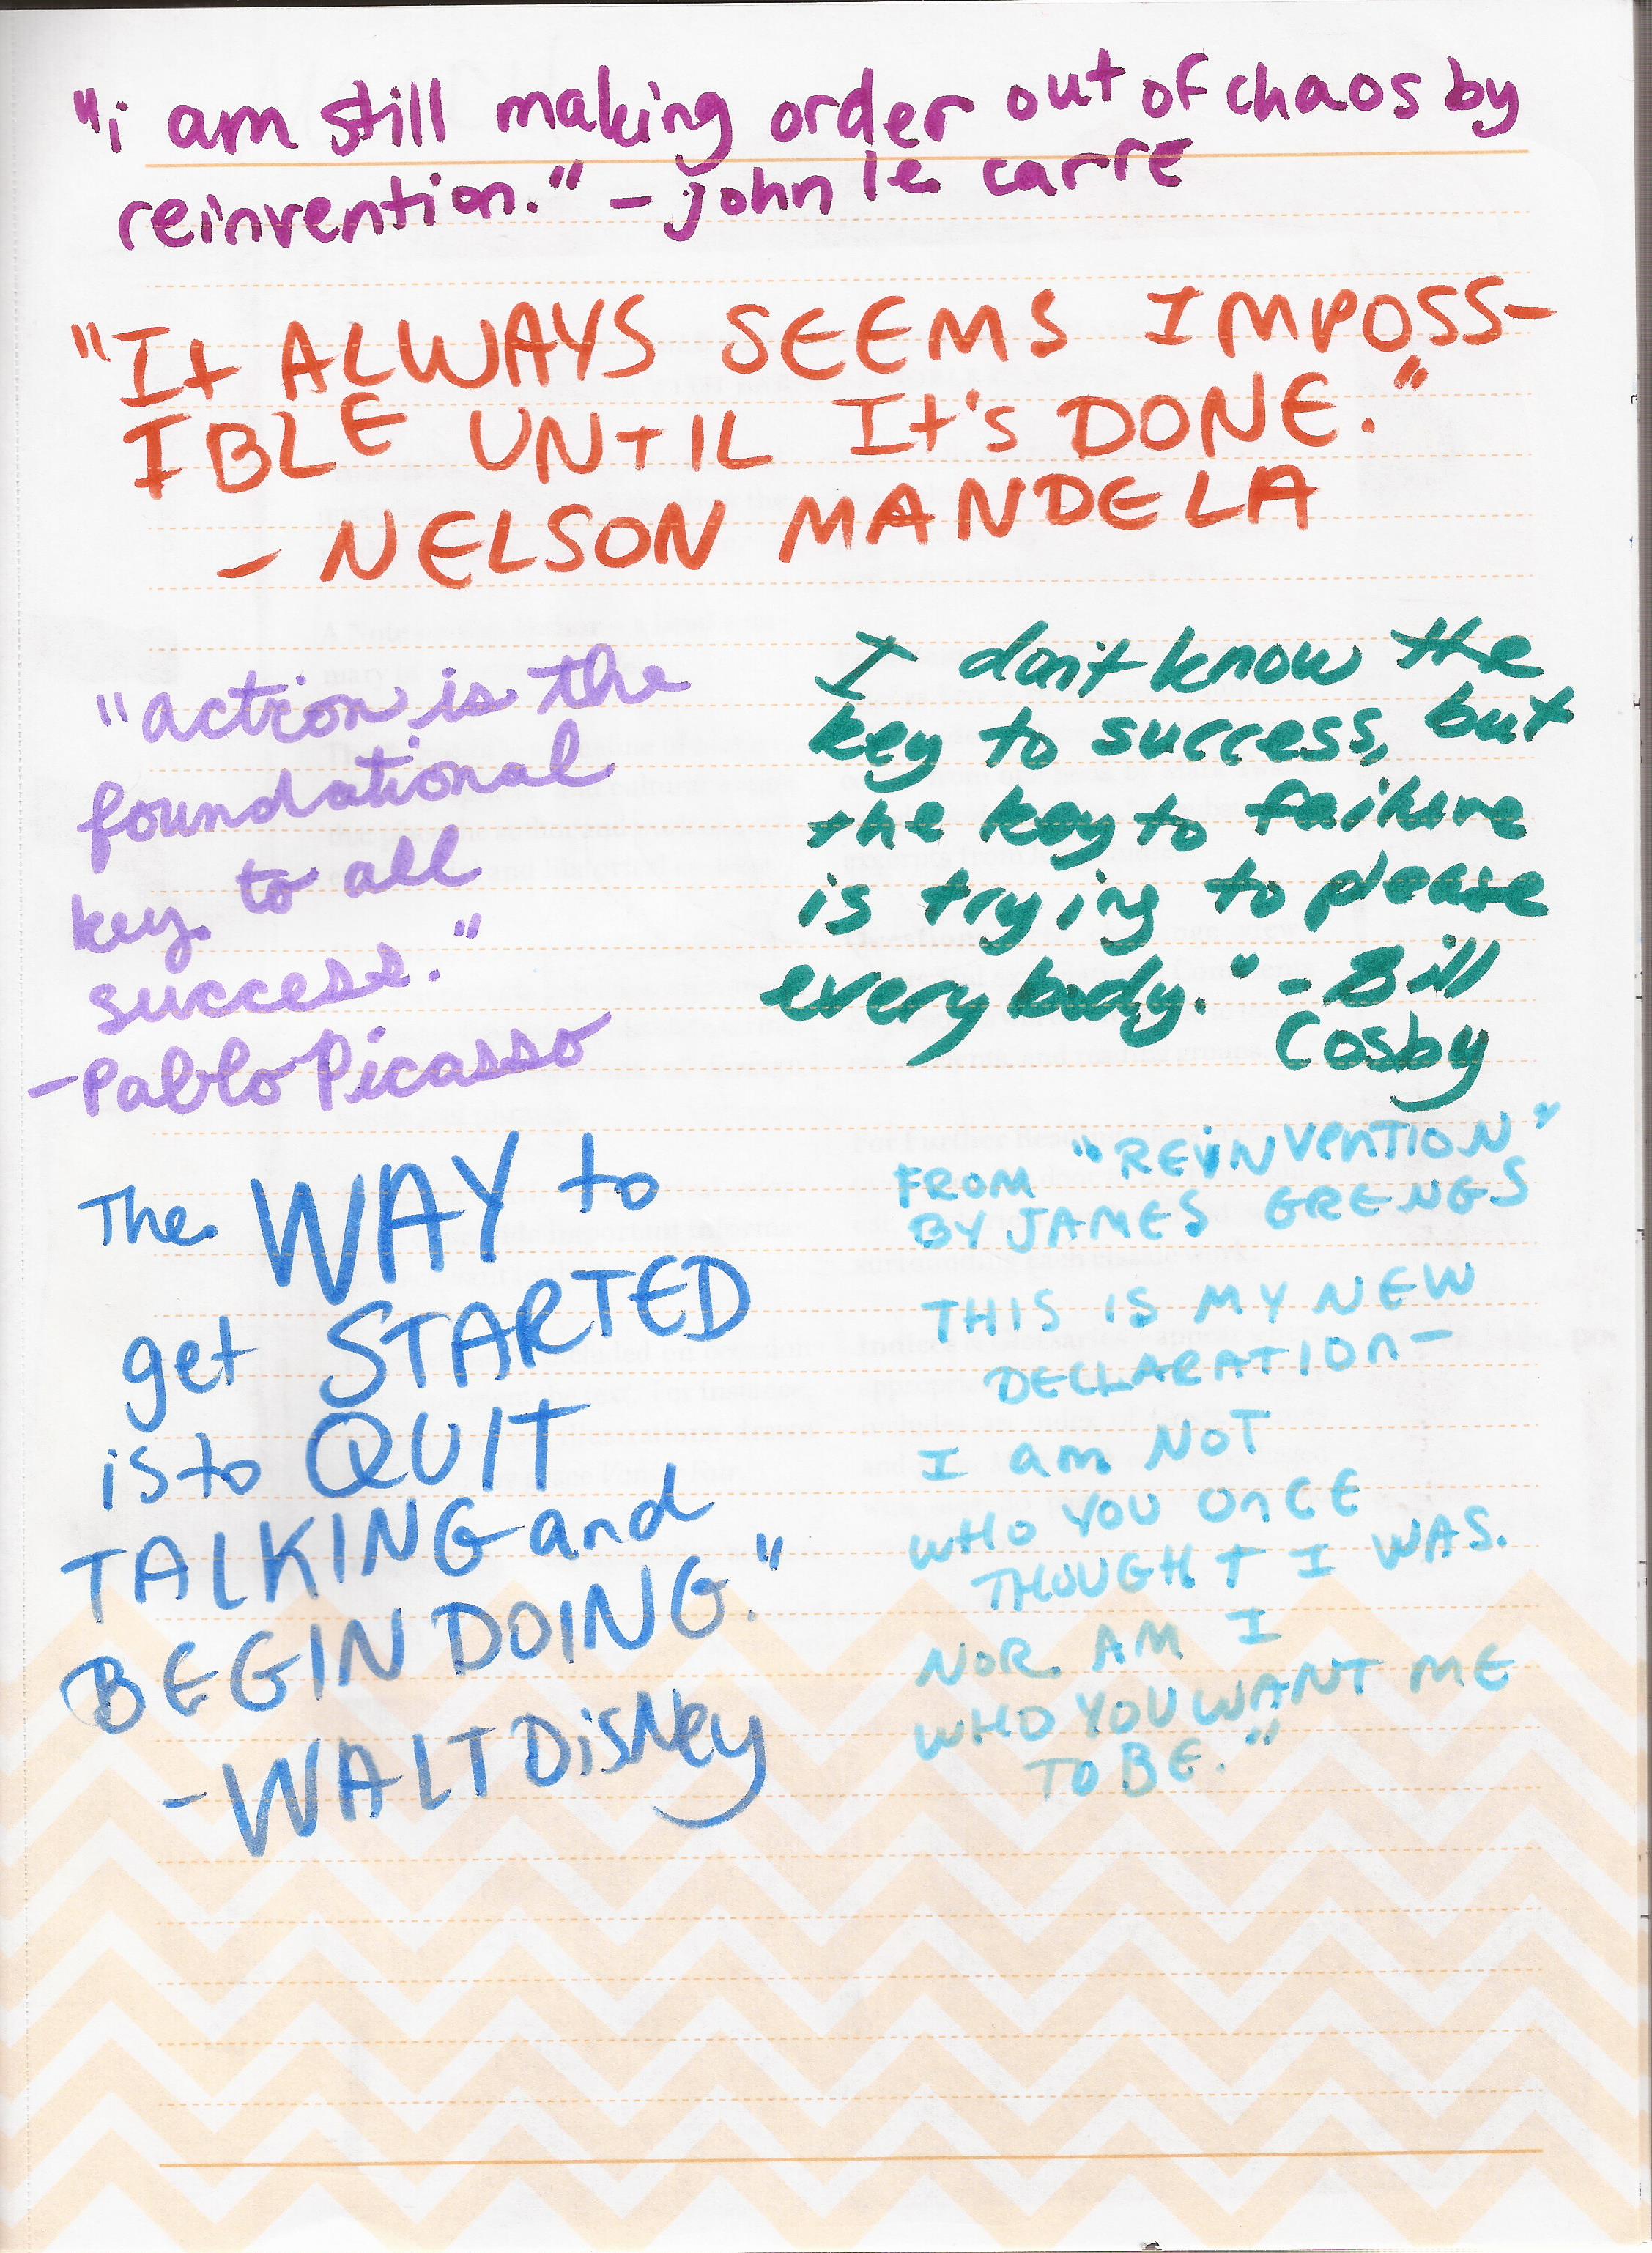 "i am still making order out of chaos by
reinvention." - john le carre
"It ALWAYS SEEMS IMPOSS-
IBLE UNTIL It's DONE."
- NELSON MANDELA
"action is the
foundational
key to all
success."
- Pablo Picasso
I don't know the
key to success, but
the key to failure
is trying to please
everybody." - Bill
Cosby
The WAY to
get STARTED
is to QUIT
TALKING and
BEGIN DOING."
- WALT DisNey
FROM "REINVENTION"
BY JAMES GRENGS
THIS IS MY NEW
DECLARATION-
I am NOT
WHO YOU ONCE
THOUGHT I WAS.
NOR AM I
WHO YOU WANT ME
TO BE."